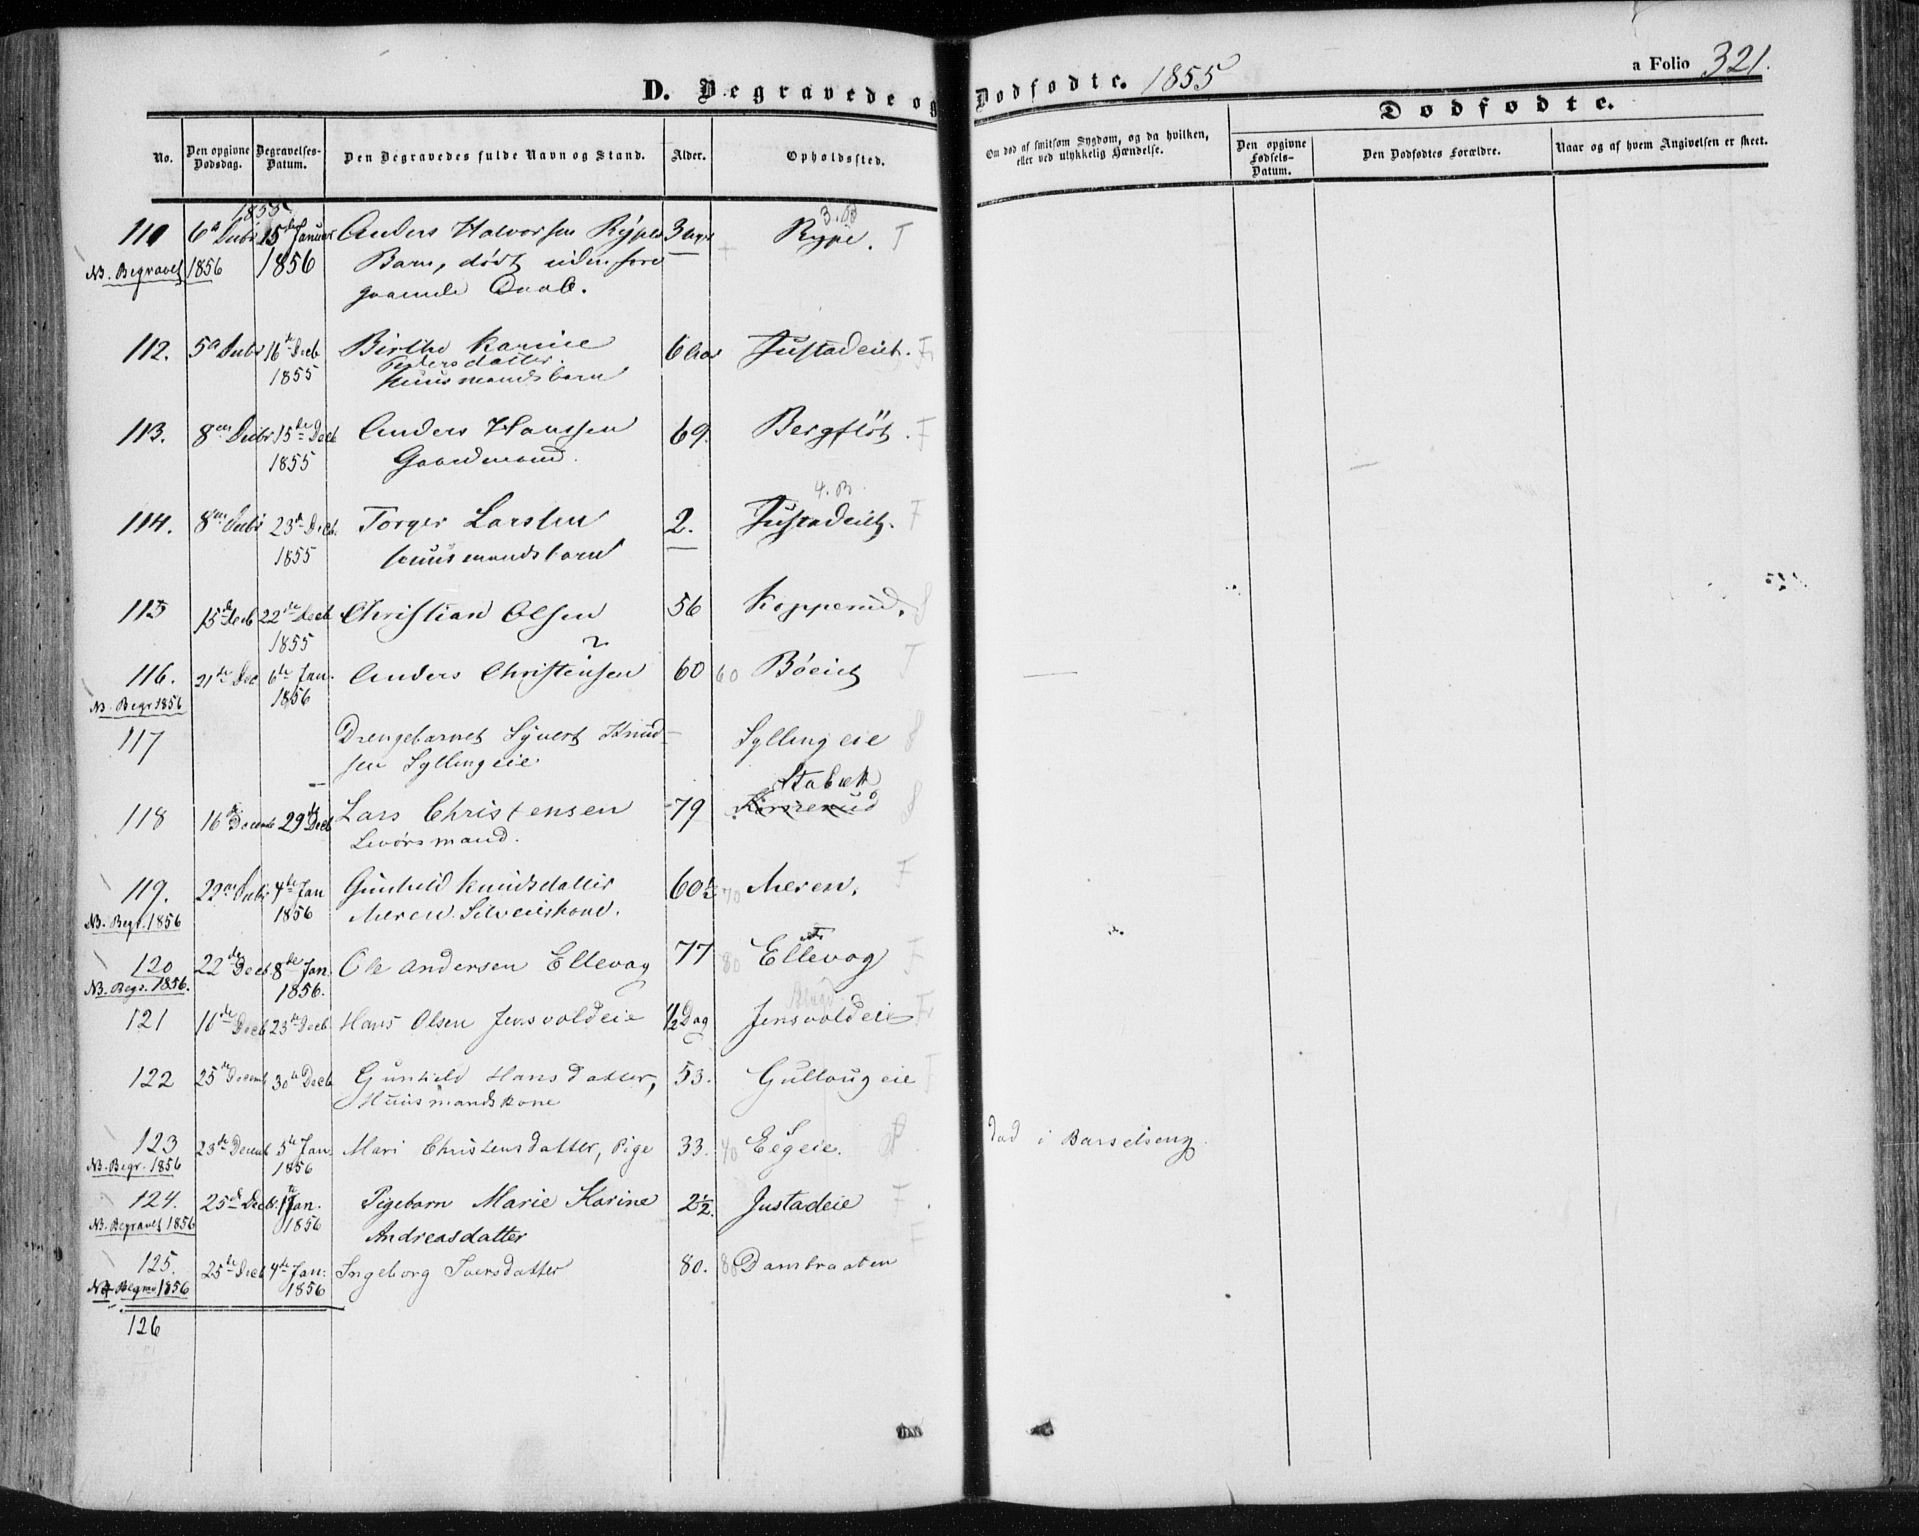 D. Begravede og Dødfødte. 1855
a Folio 321.
No.
Den opgivne Dødsdag.
Begravelses-Datum.
Den Begravedes fulde Navn og Stand.
Alder.
Opholdssted.
Om død af smitsom Sygdom, og da hvilken, eller ved ulykkelig Hændelse.
Dødfødte.
Den opgivne Fødsels-Datum.
Den Dødfødtes Forældre.
Naar og af hvem Angivelsen er skeet.
1855
110 6te Decbr 15de Januar Anders Halvorsen Rypes 3 Rype. T
NB. Begravet 1856 1856 Barn, dødt uden fore
gaaende Daab.
112. 5te Decbr 16de Decb Birthe Karine 6 Justadeiet. F
1855 Pedersdatter
Huusmandsbarn
113. 8de Decbr 15de Decb Anders Hanssen 69. Bergfløt. F
1855 Gaardmand.
4. B.
114. 8de Decbr 23de Decb. Torger Larsen 2. Justadeiet. F
1855 Huusmandsbarn
115 15de Decb 22de Decb Christian Olsen 56 Kopperud. S
1855 ?
116. 21de Dec 6te Jan. Anders Christensen 60 60 Bøeiet T
NB. Begr 1856 1856
117 Drengebarnet Syvert Knud- Syllingeie S
sen Syllingeie
Stabæk
118 16de Decemb 29de Decb Lars Christensen 79 S
Levørsmand.
119. 22de Decbr 4de Jan Gunhild Knudsdatter 60½ 70 Meren. F
NB. Begr. 1856 1856 Meren Selveierkone.
120 22de Decb 8de Jan. Ole Andersen Ellevog 77 80 Ellevog F
NB. Begr. 1856. 1856.
121 16de Decb 23de Decb Hans Olsen Jensvoldeie ½ Dag Jensvoldeie
122 25de Decemb 30te Decb Gunhild Hansdatter, 53. Gullougeie
Huusmandskone
123 23de Decemb 5te Jan. Mari Christensdatter, Pige 33. 40 Eegeie. død i Barselseng.
NB. Begr. 1856 1856
124. 25de Decb. 1te Jan. Pigebarn Marie Karine 2½. Justadeie F
NB. Begravet 1856 1856 Andreasdatter
125. 25de Decb 4de Jan. Ingeborg Iversdatter 80. 80 Dambraaten F
NB Begrav 1856 1856
126